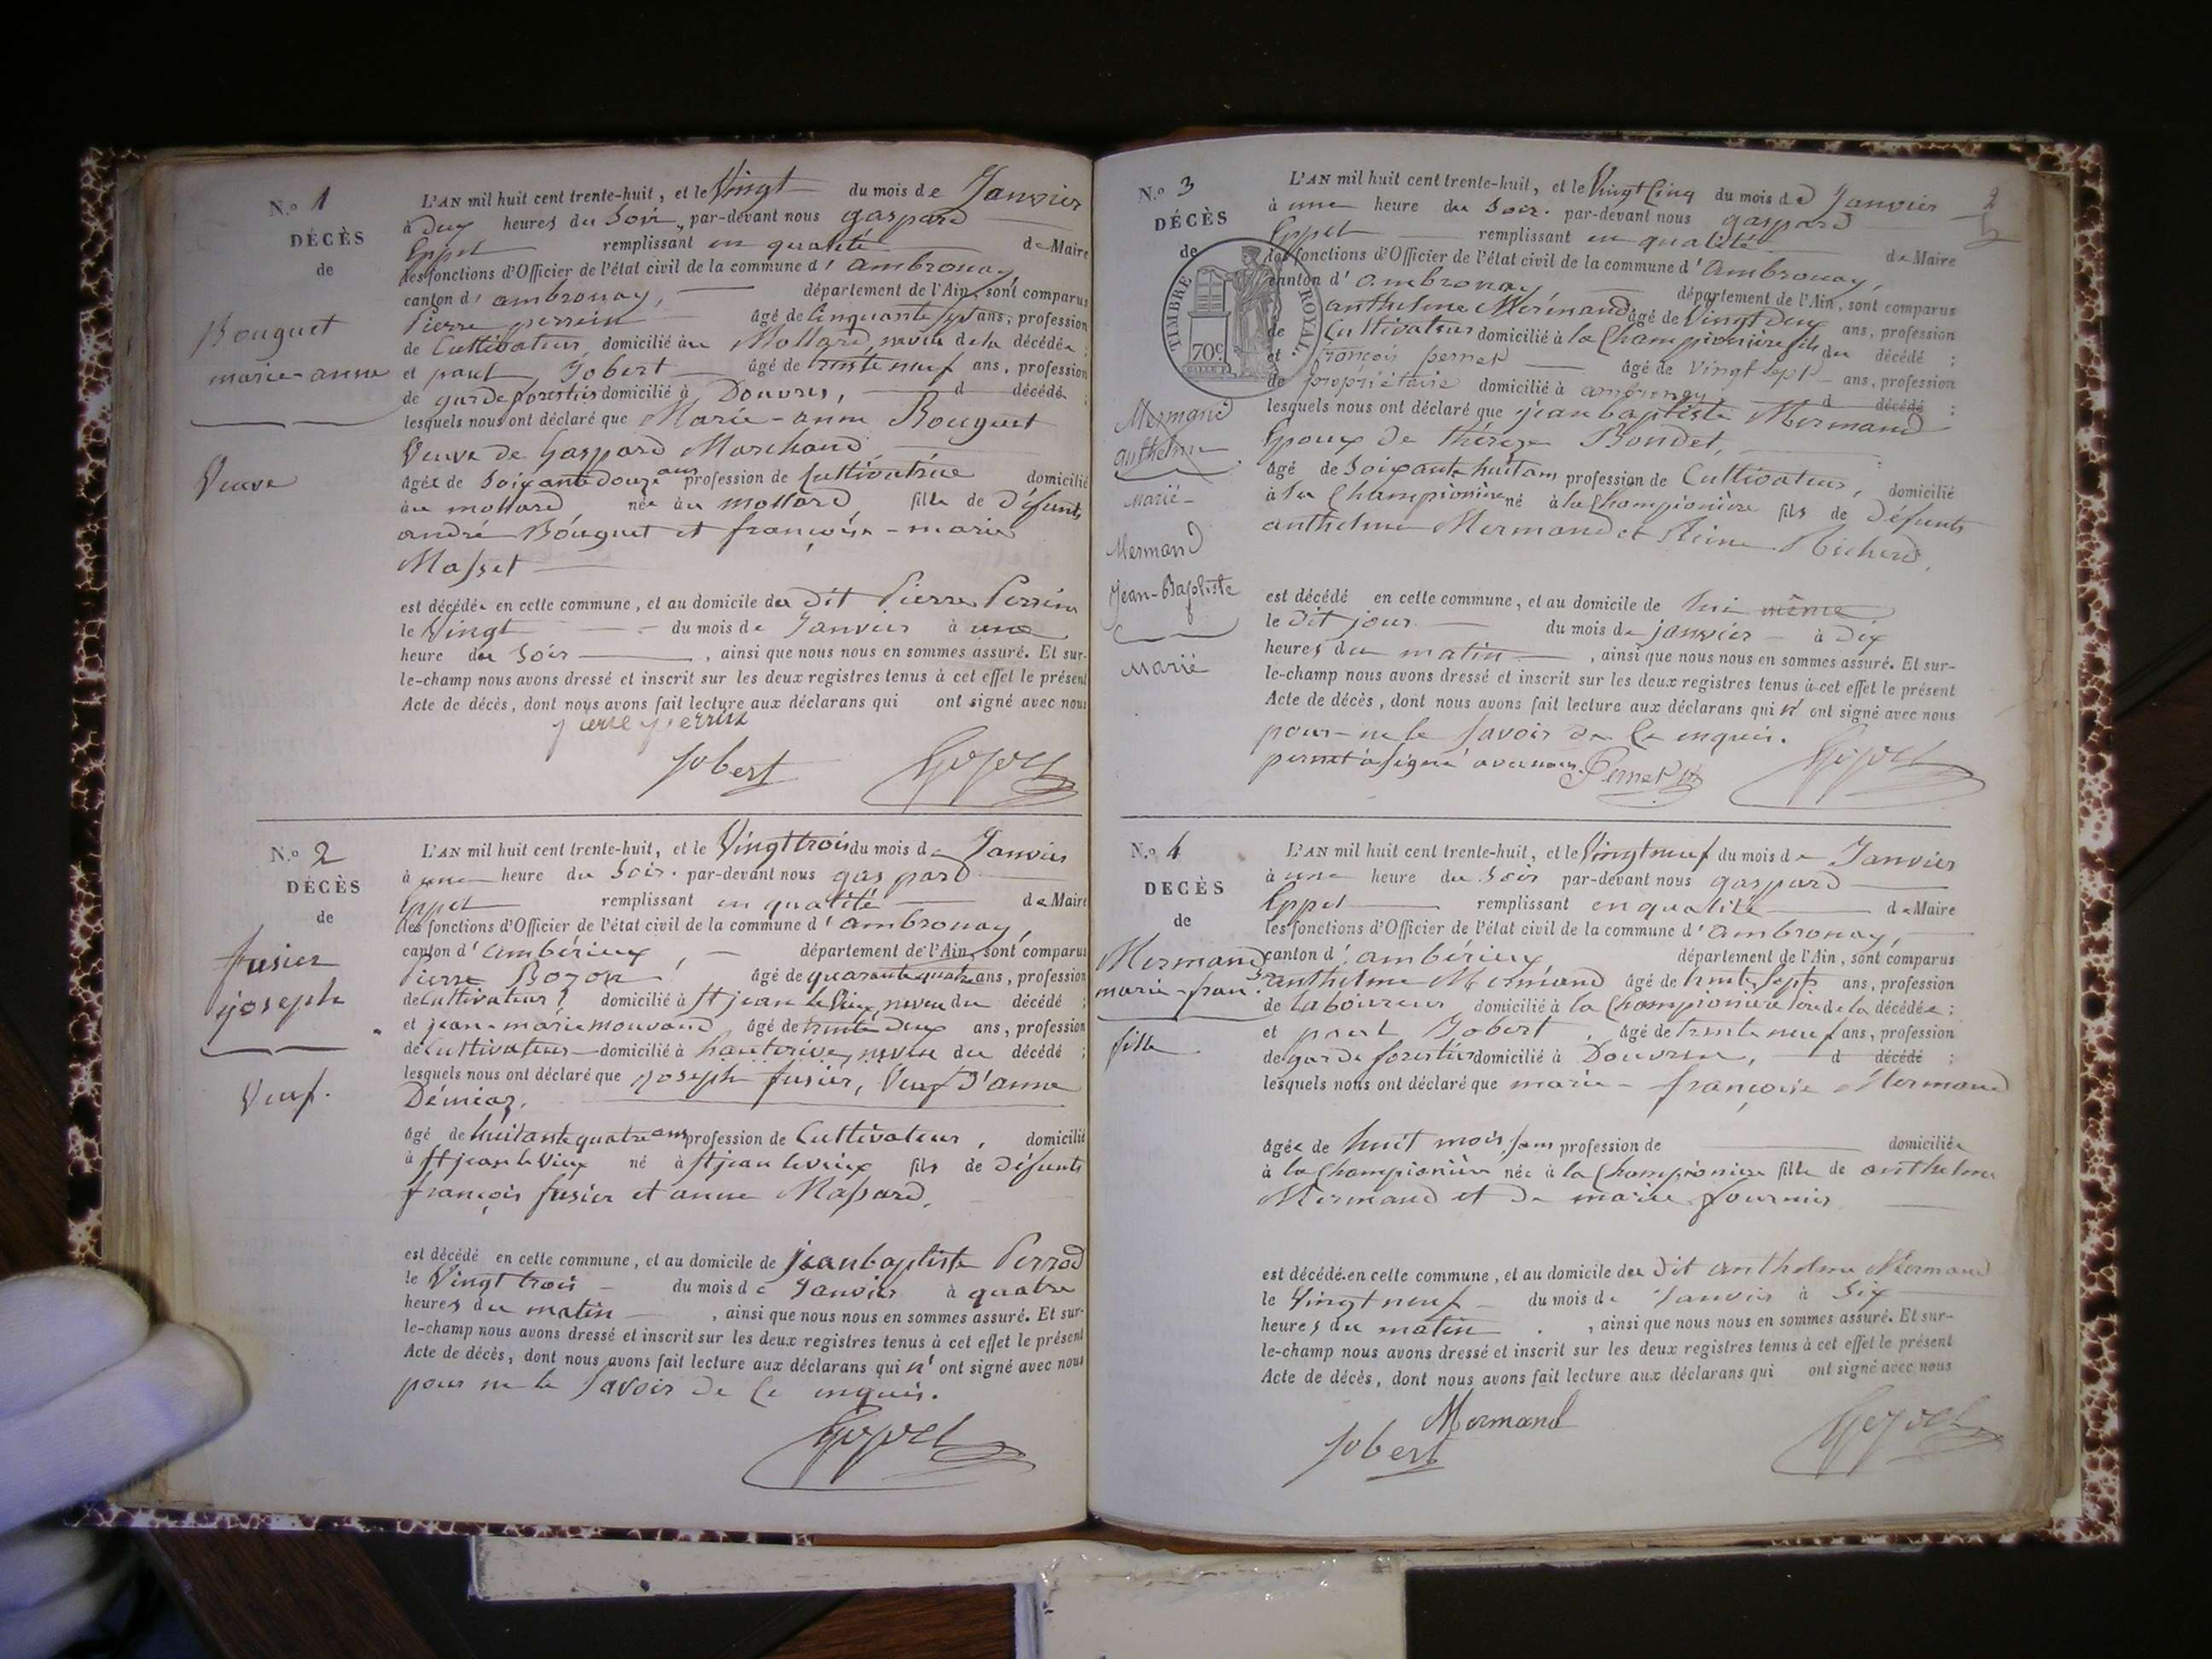 N.o 1
DÉCÈS
de
Bouguet
marie-anne
Veuve
L'AN mil huit cent trente-huit, et le Vingt du mois de Janvier
à Deux heures du Soir, par-devant nous gaspard
Eppet remplissant en qualité de Maire
les fonctions d'Officier de l'état civil de la commune d'ambronay,
canton d'ambronay, département de l'Ain, sont comparus
Pierre perrein âgé de Cinquante Sept ans, profession
de Cultivateur, domicilié au Mollard, neveu de la décédée ;
et paul Jobert âgé de trente neuf ans, profession
de garde forestier domicilié à Douvres, d décédé ;
lesquels nous ont déclaré que Marie-anne Bouguet
Veuve de Gaspard Marchand
âgée de Soixante douze ans profession de Cultivatrice domicilié
au mollard née au mollard, fille de Défunts
andré Bouguet et françoise-marie
Masset
est décédée en cette commune, et au domicile du Dit Pierre Perrein
le Vingt du mois de Janvier à une
heure du Soir, ainsi que nous nous en sommes assuré. Et sur-
le-champ nous avons dressé et inscrit sur les deux registres tenus à cet effet le présent
Acte de décès, dont nous avons fait lecture aux déclarans qui ont signé avec nous
pierre perrin
Jobert
N.o 2
DÉCÈS
de
fusier
joseph
Veuf.
L'AN mil huit cent trente-huit, et le Vingt trois du mois de Janvier
à une heure du Soir. par-devant nous gaspard
Eppet remplissant en qualité de Maire
les fonctions d'Officier de l'état civil de la commune d'ambronay,
canton d'ambérieux, département de l'Ain, sont comparus
Pierre Bozon âgé de quarante quatre ans, profession
de Cultivateur, domicilié à St jean le Vieux, neveu du décédé ;
et jean-marie mouvand, âgé de trente Deux ans, profession
de Cultivateur domicilié à hauterive, neveu du décédé ;
lesquels nous ont déclaré que joseph fusier, Veuf d'anne
Démiaz.
âgé de huitante quatre ans profession de Cultivateur, domicilié
à St jean le Vieux né à St jean le vieux fils de Défunts
françois fusier et anne Massard,
est décédé en cette commune, et au domicile de jean baptiste Perrod
le Vingt trois du mois de Janvier à quatre
heures du matin, ainsi que nous nous en sommes assuré. Et sur-
le-champ nous avons dressé et inscrit sur les deux registres tenus à cet effet le présent
Acte de décès, dont nous avons fait lecture aux déclarans qui n'ont signé avec nous
pour ne le Savoir de Ce enquis.
N.o 3
DÉCÈS
de
TIMBRE ROYAL
70c
Mermand
anthelme
Marié-
Mermand
Jean-Baptiste
Marié
2
L'AN mil huit cent trente-huit, et le Vingt Cinq du mois de Janvier
à une heure du Soir. par-devant nous gaspard
Eppet remplissant en qualité de Maire
les fonctions d'Officier de l'état civil de la commune d'ambronay,
canton d'ambronay, département de l'Ain, sont comparus
anthelme Mermand âgé de Vingt Deux ans, profession
de Cultivateur domicilié à la Championière fils du décédé ;
et françois pernet âgé de Vingt Sept ans, profession
de propriétaire domicilié à ambronay, d décédé ;
lesquels nous ont déclaré que jean baptiste Mermand
Epoux de thérèze Bondet,
âgé de Soixante huit ans profession de Cultivateur, domicilié
à la Championière né à la Championière fils de Défunts
anthelme Mermand et Reine Richerd,
est décédé en cette commune, et au domicile de lui même
le Dit jour du mois de janvier à Dix
heures du matin, ainsi que nous nous en sommes assuré. Et sur-
le-champ nous avons dressé et inscrit sur les deux registres tenus à cet effet le présent
Acte de décès, dont nous avons fait lecture aux déclarans qui n'ont signé avec nous
pour ne le Savoir de Ce enquis.
pernet a signé avec nous. Pernet
N.o 4
DÉCÈS
de
Mermand
marie-fran.se
fille
L'AN mil huit cent trente-huit, et le Vingt neuf du mois de Janvier
à une heure du Soir par-devant nous gaspard
Eppet remplissant en qualité de Maire
les fonctions d'Officier de l'état civil de la commune d'ambronay,
canton d'ambérieux département de l'Ain, sont comparus
anthelme Mermand âgé de trente Sept ans, profession
de laboureur domicilié à la Championière père de la décédée ;
et paul Jobert, âgé de trente neuf ans, profession
de garde forestier domicilié à Douvres, d décédé ;
lesquels nous ont déclaré que marie-françoise Mermand
âgée de huit mois, sans profession de domiciliée
à la Championière née à la Championière fille de anthelme
Mermand et de marie fournier
est décédée en cette commune, et au domicile du Dit anthelme Mermand
le Vingt neuf du mois de Janvier à Six
heures du matin, ainsi que nous nous en sommes assuré. Et sur-
le-champ nous avons dressé et inscrit sur les deux registres tenus à cet effet le présent
Acte de décès, dont nous avons fait lecture aux déclarans qui ont signé avec nous
Mermand
Jobert